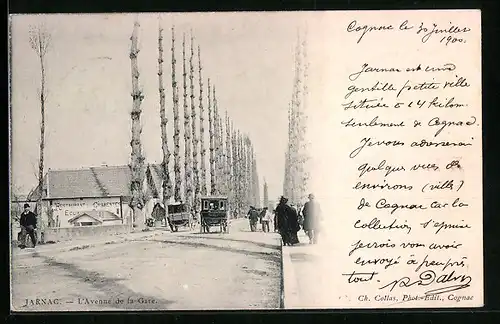 Cognac le 30 Juillet
1900.
Jarnac est une
gentille petite ville
située à 14 kilom.
seulement de Cognac.
Je vous adresserai
quelques vues des
environs (ville)
de Cognac car la
collection
je crois vous avoir
envoyé à peu près
tout.
RESTAURANT
JARNAC. — L'Avenue de la Gare.
Ch. Collas, Phot.-Edit., Cognac